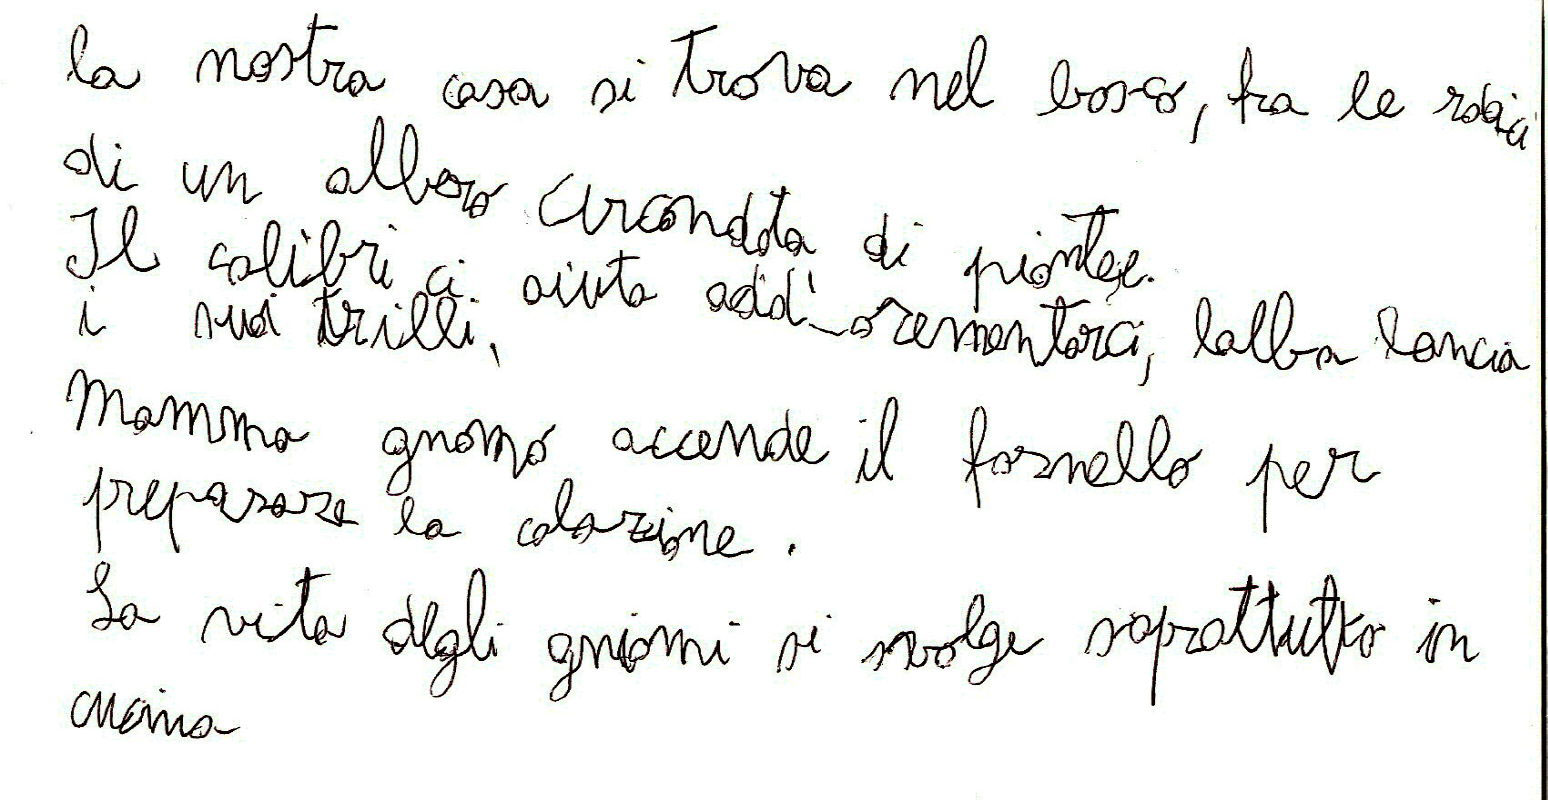 la nostra casa si trova nel bosco, fra le radici
di un albero circondata di piante.
Il colibrì ci aiuta add'-orementarci, lalba lancia
i suoi trilli.
Mamma gnomo accende il fornello per
preparare la colazione.
La vita degli gniomi si svolge soprattutto in
cucina